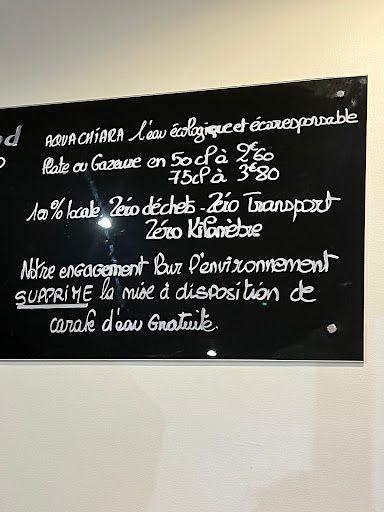 AQUA CHIARA l'eau écologique et écoresponsable
Plate ou Gazeuse en 50cl à 2€60
75cl à 3€80
100% locale, Zéro déchets - Zéro Transport
Zéro Kilomètre
Notre engagement Pour l'environnement
SUPPRIME la mise à disposition de
carafe d'eau Gratuite.